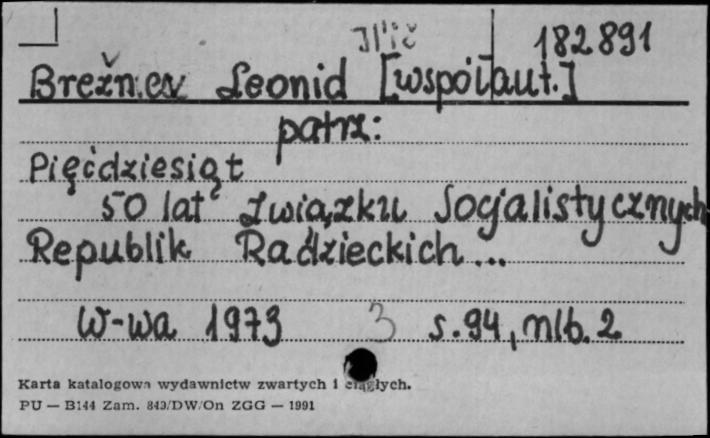 Il'ič 182891
Brežnev Leonid [współaut.]
patrz:
Pięćdziesiąt
50 lat Związku Socjalistycznych
Republik Radzieckich...
W-wa 1973 3 s. 94, nlb. 2
Karta katalogowa wydawnictw zwartych i ciągłych.
PU — B144 Zam. 843/DW/On ZGG — 1991